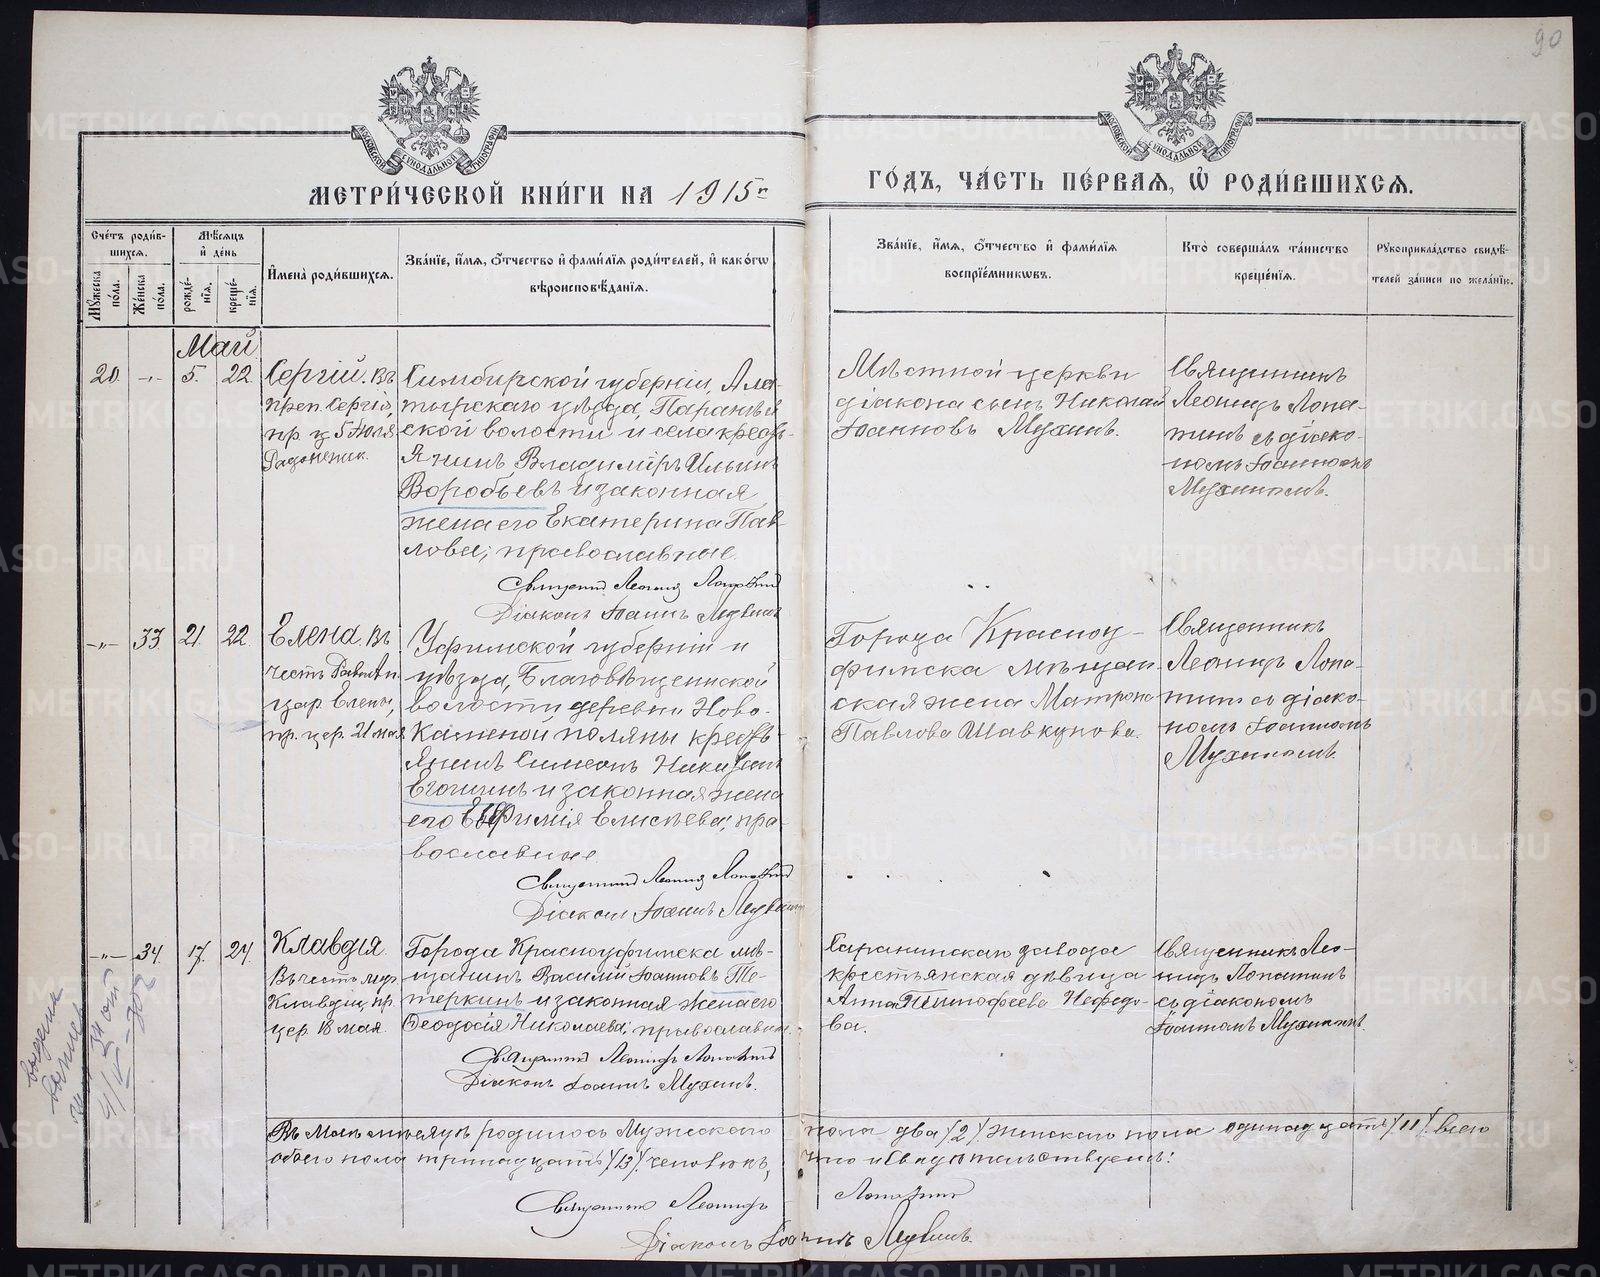 90
МОСКОВСКОЙ СѴНОДАЛЬНОЙ ТИПОГРАФІИ
МОСКОВСКОЙ СѴНОДАЛЬНОЙ ТИПОГРАФІИ
МЕТРИ́ЧЕСКОЙ КНИ́ГИ НА 1915 г.
ГО́ДЪ, ЧА́СТЬ ПЕ́РВАѦ, Ѡ҆ РОДИ́ВШИХСѦ.
Сче́тъ роди́в-
шихсѧ.
Мꙋ́жеска по́ла.
Же́нска по́ла.
Мѣ́сѧцъ
и҆ де́нь
рожде́-
нїѧ.
креще́-
нїѧ.
И҆мена̀ роди́вшихсѧ.
Зва́нїе, и҆́мѧ, ѻ҆́тчество и҆ фами́лїѧ роди́телей, и҆ како́гѡ
вѣроисповѣ́данїѧ.
Зва́нїе, и҆́мѧ, ѻ҆́тчество и҆ фами́лїѧ
воспрїе́мниковъ.
Кто̀ соверша́лъ та́инство
креще́нїѧ.
Рꙋкоприкла́дство свидѣ́-
телей за́писи по жела́нїю.
Май
20 -"- 5. 22.
Сергій. Въ
преп. Сергія,
пр. ц. 5 Іюля
Радонежск.
Симбирской губерніи, Ала-
тырскаго уѣзда, Паранѣй
ской волости и села кресть-
янинъ Владиміръ Ильинъ
Воробьевъ и законная
жена его Екатерина Пав-
лова; православные.
Священник Леонид Лопатин
Діаконъ Іоаннъ Мухинъ
Мѣстной церкви
діакона сынъ Николай
Іоанновъ Мухинъ.
Священникъ
Леонидъ Лопа-
тинъ съ діако-
номъ Іоанномъ
Мухинымъ.
-"- 33. 21. 22.
Елена. Въ
честь Равноап.
цар. Елены,
пр. цер. 21 мая
Уфимской губерніи и
уѣзда, Благовѣщенской
волости деревни Ново-
Каменной поляны кресть-
янинъ Симеонъ
и законная жена
его Евфимія Елисѣева; пра-
вославные.
Священник Леонид Лопатин
Діаконъ Іоаннъ Мухинъ
Города Красноу-
фимска мѣщан-
ская жена Матрона
Павлова Шавкунова.
Священникъ
Леонидъ Лопа-
тинъ съ діако-
номъ Іоанномъ
Мухинымъ.
-"- 34. 17. 24.
Клавдія.
Въ честь муч.
Клавдіи, пр.
цер. 18 мая.
Города Красноуфимска мѣ-
щанинъ Василій Іоанновъ Те-
теркинъ и законная жена его
Ѳеодосія Николаева; православн.
Священник Леонидъ Лопатинъ
Діаконъ Іоаннъ Мухинъ.
Саранинскаго завода
крестьянская дѣвица
Анна Тимофеева Нефедо-
ва.
Священникъ Лео-
нидъ Лопатинъ
съ діакономъ
Іоанномъ Мухинымъ.
Въ Маѣ мѣсяцѣ родилось Мужескаго пола два /2/ Женскаго пола одинадцать /11/. всего
обоего пола тринадцать /13/ человѣкъ, что и свидѣтельствуемъ:
Священник Леонидъ Лопатин
Діаконъ Іоаннъ Мухинъ.